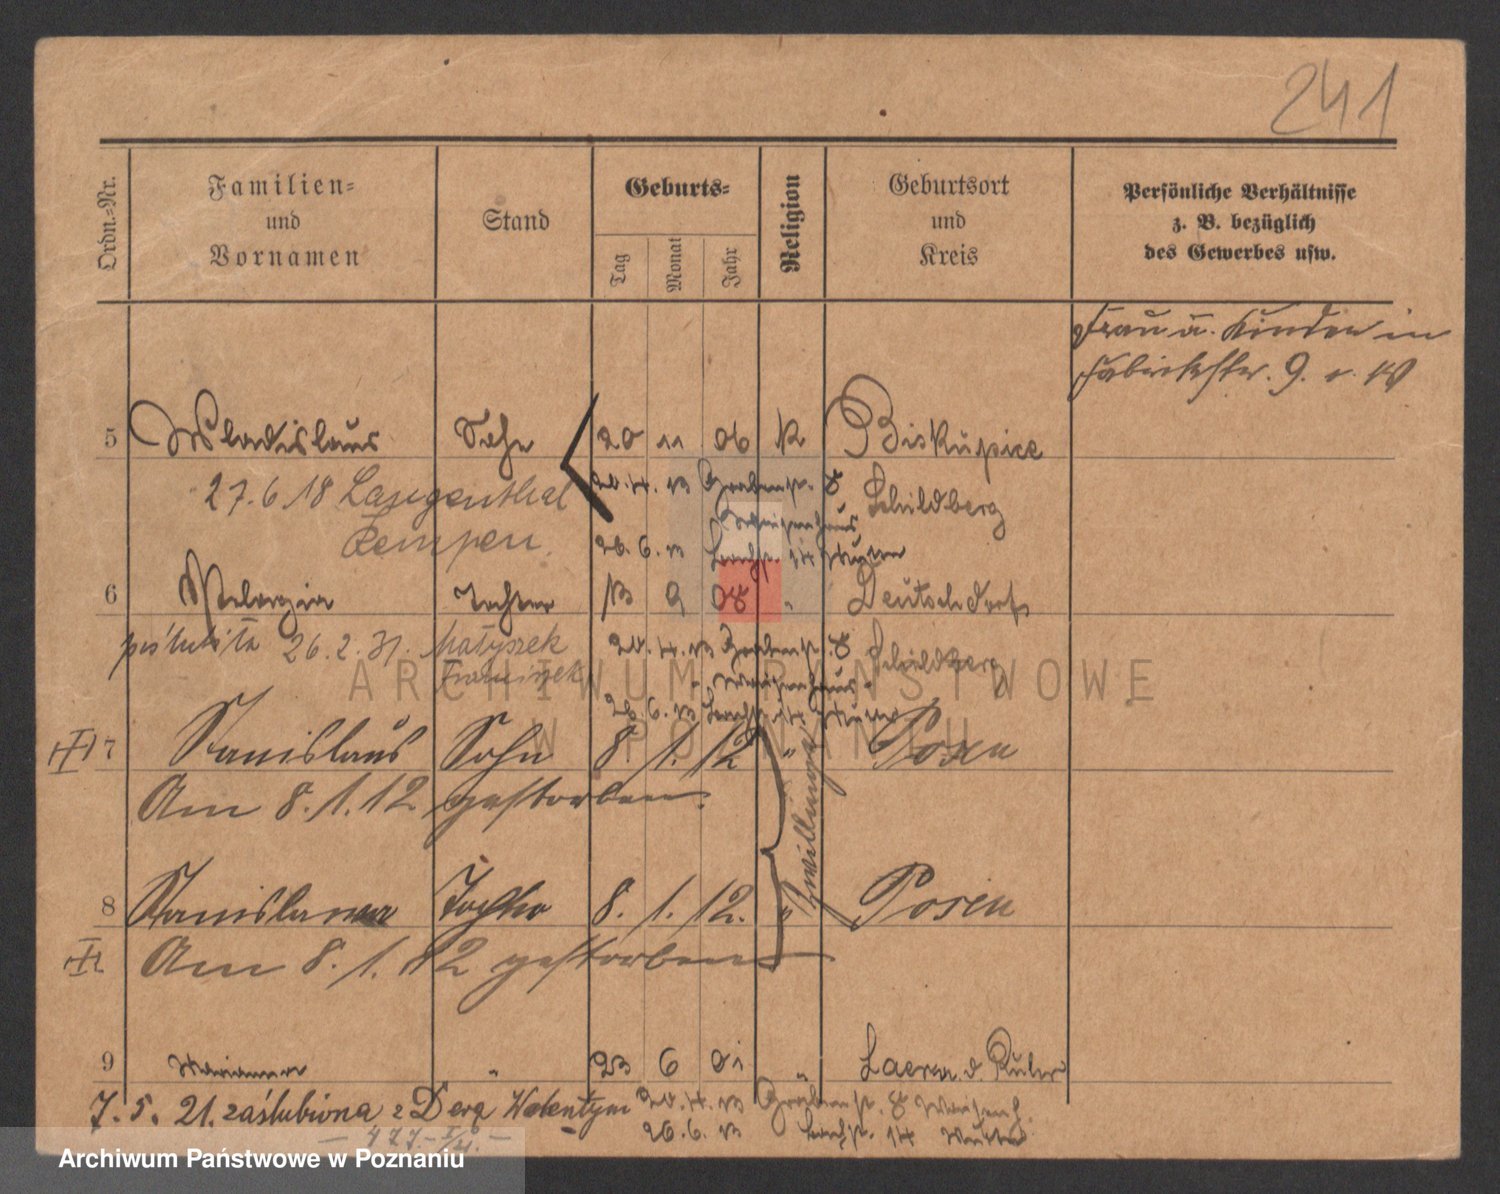 241
Ordn.-Nr.
Familien-
und
Vornamen
Stand
Geburts-
Tag
Monat
Jahr
Religion
Geburtsort
und
Kreis
Persönliche Verhältnisse
z. B. bezüglich
des Gewerbes usw.
Frau u. Kinder in
Fabrikstr. 9. v.
5 Wladislaus Sohn 20 11 06 K Biskupice
27.6.18 Langenthal Schildberg
Kempen.
Waisenhaus
26. 6. 13
6 Pelagia Tochter 13 9 08 " Deutschdorf
26.2.31. Matyszek Schildberg
Franciszek
Waisenhaus
7 Stanislaus Sohn 8. 1. 12 " Posen
Am 8.1.12. gestorben.
Zwillinge
8 Stanislawa Tochter 8. 1. 12. " Posen
Am 8. 1. 12 gestorben
9 Marianna " 23 6 01 " Laer
7. 5. 21. zaślubiona z Derą Walentym 20. 4. 13 Grabenstr. 8 Waisenh.
26. 6. 13
ARCHIWUM PAŃSTWOWE
W POZNANIU
Archiwum Państwowe w Poznaniu